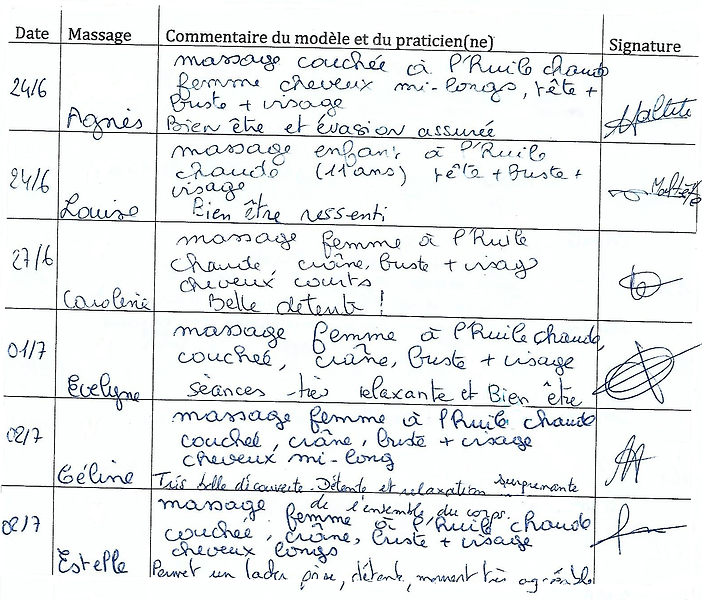 Date Massage Commentaire du modèle et du praticien(ne) Signature
massage couchée à l'huile chaude
24/6 femme cheveux mi-longs, tête +
buste + visage
Agnès Bien être et évasion assurée
massage enfant à l'huile
24/6 chaude (11 ans) tête + buste +
visage
Louise Bien être ressenti
massage femme à l'huile
27/6 chaude, crâne, buste + visage
cheveux courts
Caroline Belle détente !
massage femme à l'huile chaude,
01/7 couchée, crâne, buste + visage
Evelyne séances très relaxante et Bien être
massage femme à l'huile chaude
02/7 couchée, crâne, buste + visage
cheveux mi-long
Céline Très belle découverte. Détente et relaxation surprenante
de l'ensemble du corps.
massage femme à l'huile chaude
02/7 couchée, crâne, buste + visage
cheveux longs
Estelle Permet un lacher prise, détente, moment très agréable